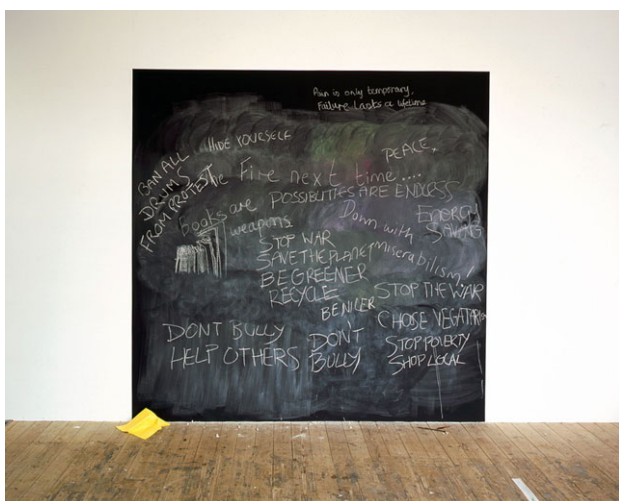 Pain is only temporary.
Failure Lasts a lifetime
HIDE YOURSELF
PEACE.
BAN ALL
DRUMS
FROM PROTEST
The Fire next time....
POSSIBILITIES ARE ENDLESS
books are
weapons
Down with
miserabilism!
ENERGY
SAVING
STOP WAR
SAVE THE PLANET
BE GREENER
RECYCLE
STOP THE WAR
BE NICER
CHOSE VEGATARIAN
DONT BULLY
HELP OTHERS
DON'T
BULLY
STOP POVERTY
SHOP LOCAL